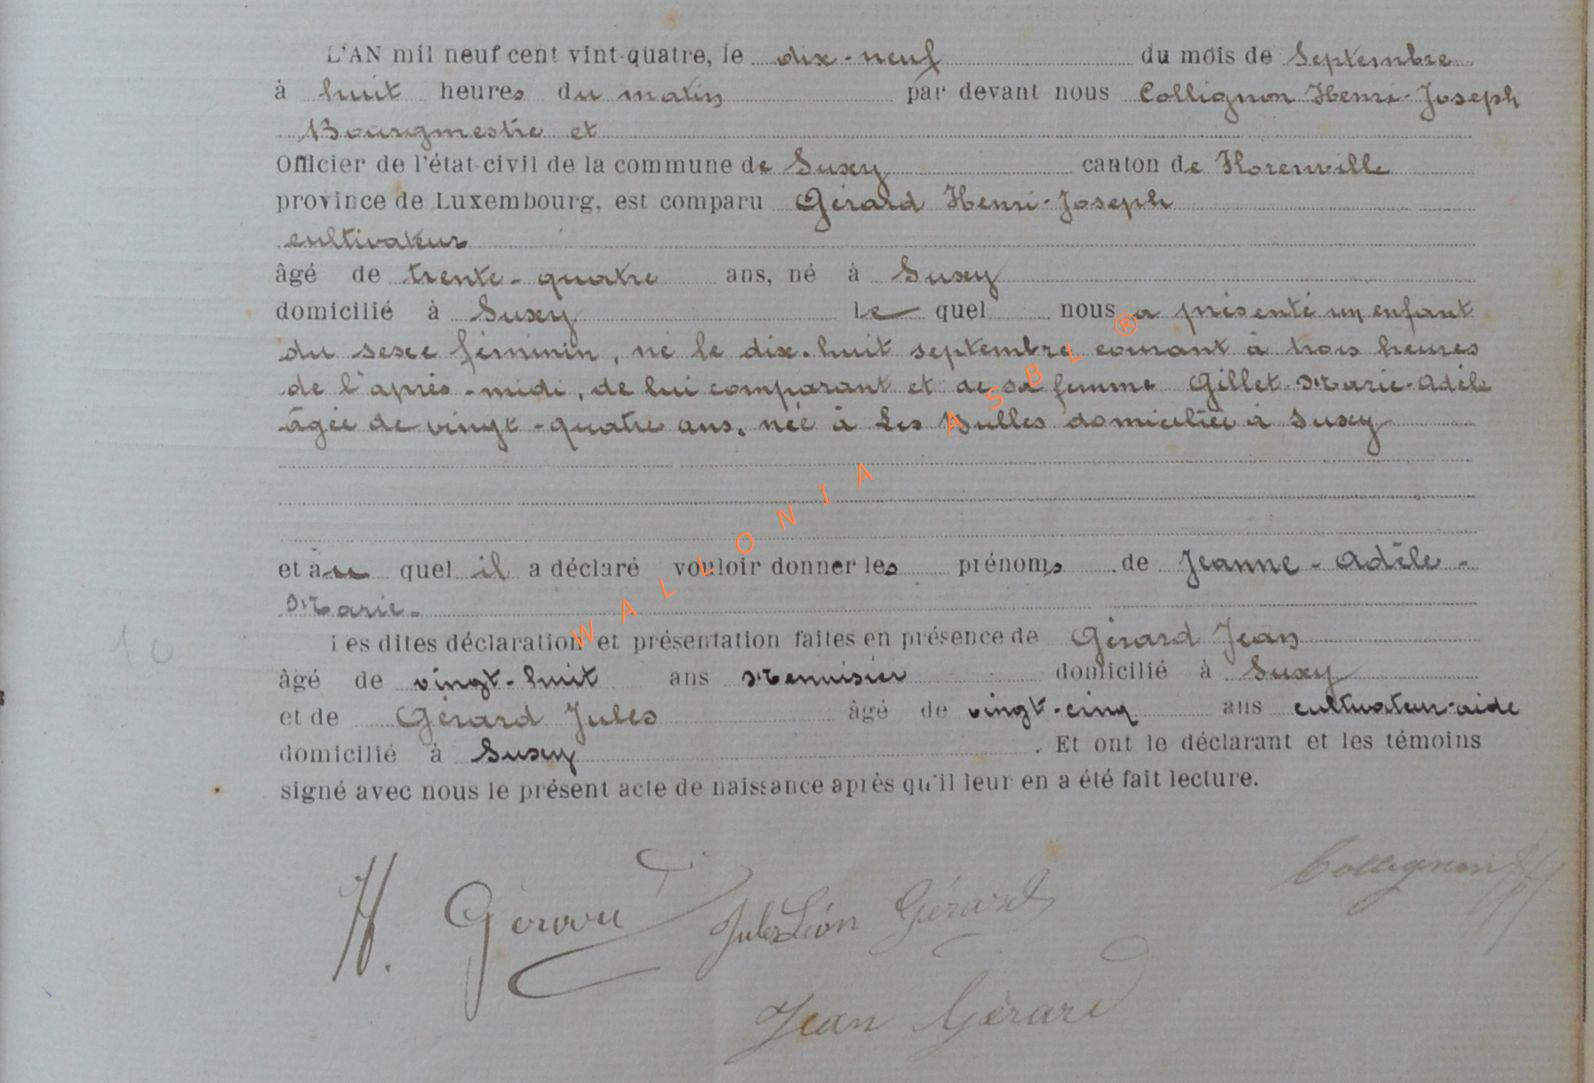 L'AN mil neuf cent vint-quatre, le dix-neuf du mois de Septembre
à huit heures du matin par devant nous Collignon Henri-Joseph
Bourgmestre et
Officier de l'état civil de la commune de Suxy canton de Florenville
province de Luxembourg, est comparu Gérard Henri-Joseph
cultivateur
âgé de trente-quatre ans, né à Suxy
domicilié à Suxy le quel nous a présenté un enfant
du sexe féminin, né le dix-huit septembre courant à trois heures
de l'après-midi, de lui comparant et de sa femme Gillet Marie-Adèle
âgée de vingt-quatre ans, née à Les Bulles domiciliée à Suxy
et au quel il a déclaré vouloir donner les prénoms de Jeanne-Adèle-
Marie.
Les dites déclaration et présentation faites en présence de Gérard Jean
âgé de vingt-huit ans Menuisier domicilié à Suxy
et de Gérard Jules âgé de vingt-cinq ans cultivateur-aide
domicilié à Suxy. Et ont le déclarant et les témoins
signé avec nous le présent acte de naissance après qu'il leur en a été fait lecture.
10
H. Gérard Jules Léon Gérard Collignon
Jean Gérard
WALLONIA ASBL ®